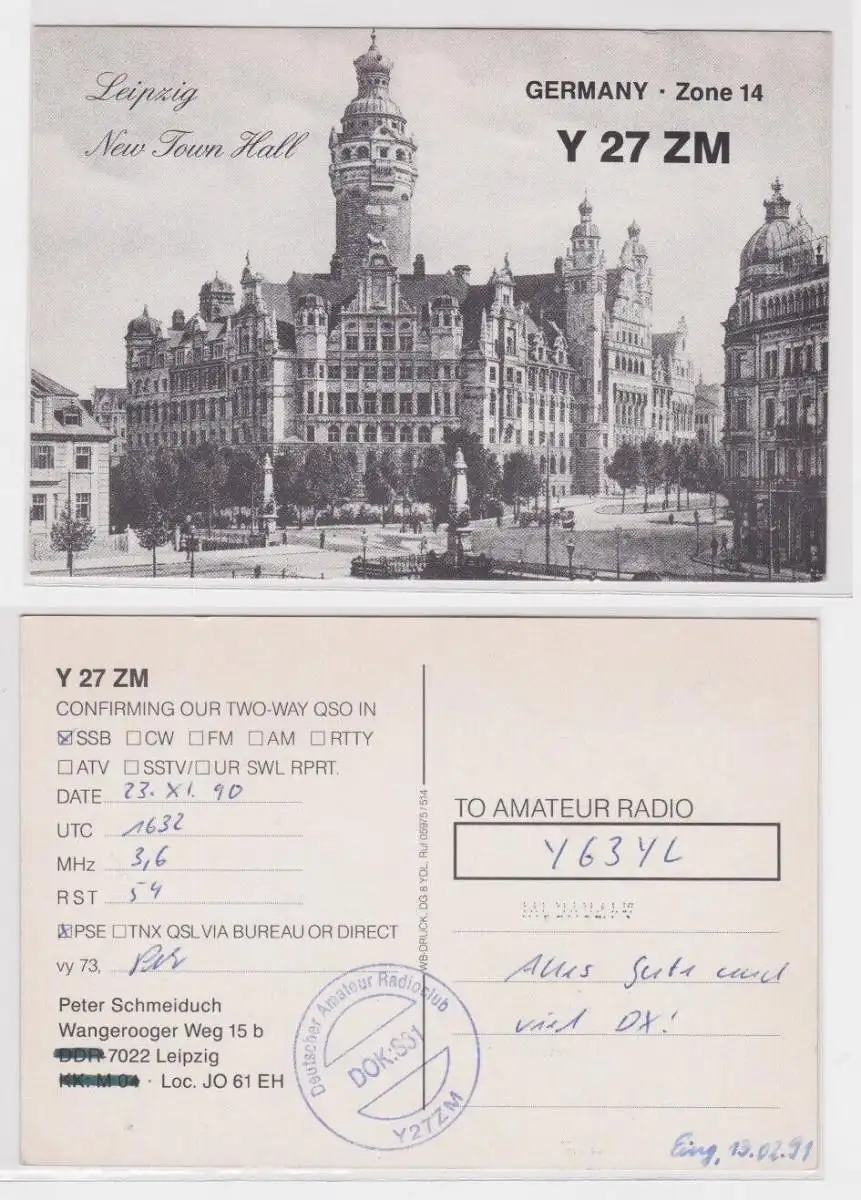 Leipzig
New Town Hall
GERMANY · Zone 14
Y 27 ZM
Y 27 ZM
CONFIRMING OUR TWO-WAY QSO IN
☒SSB ☐CW ☐FM ☐AM ☐RTTY
☐ATV ☐SSTV/☐UR SWL RPRT.
DATE 23. XI. 90
UTC 1632
MHz 3,6
RST 59
☒PSE ☐TNX QSL VIA BUREAU OR DIRECT
vy 73, Peter
Peter Schmeiduch
Wangerooger Weg 15 b
DDR-7022 Leipzig
KK: M 04 · Loc. JO 61 EH
Deutscher Amateur Radioclub
DOK:S31
Y27ZM
WB-DRUCK, DG 8 YDL, Ruf 05975 / 514
TO AMATEUR RADIO
Y63YL
Alles Gute und
viel DX!
Eing. 19.02.91